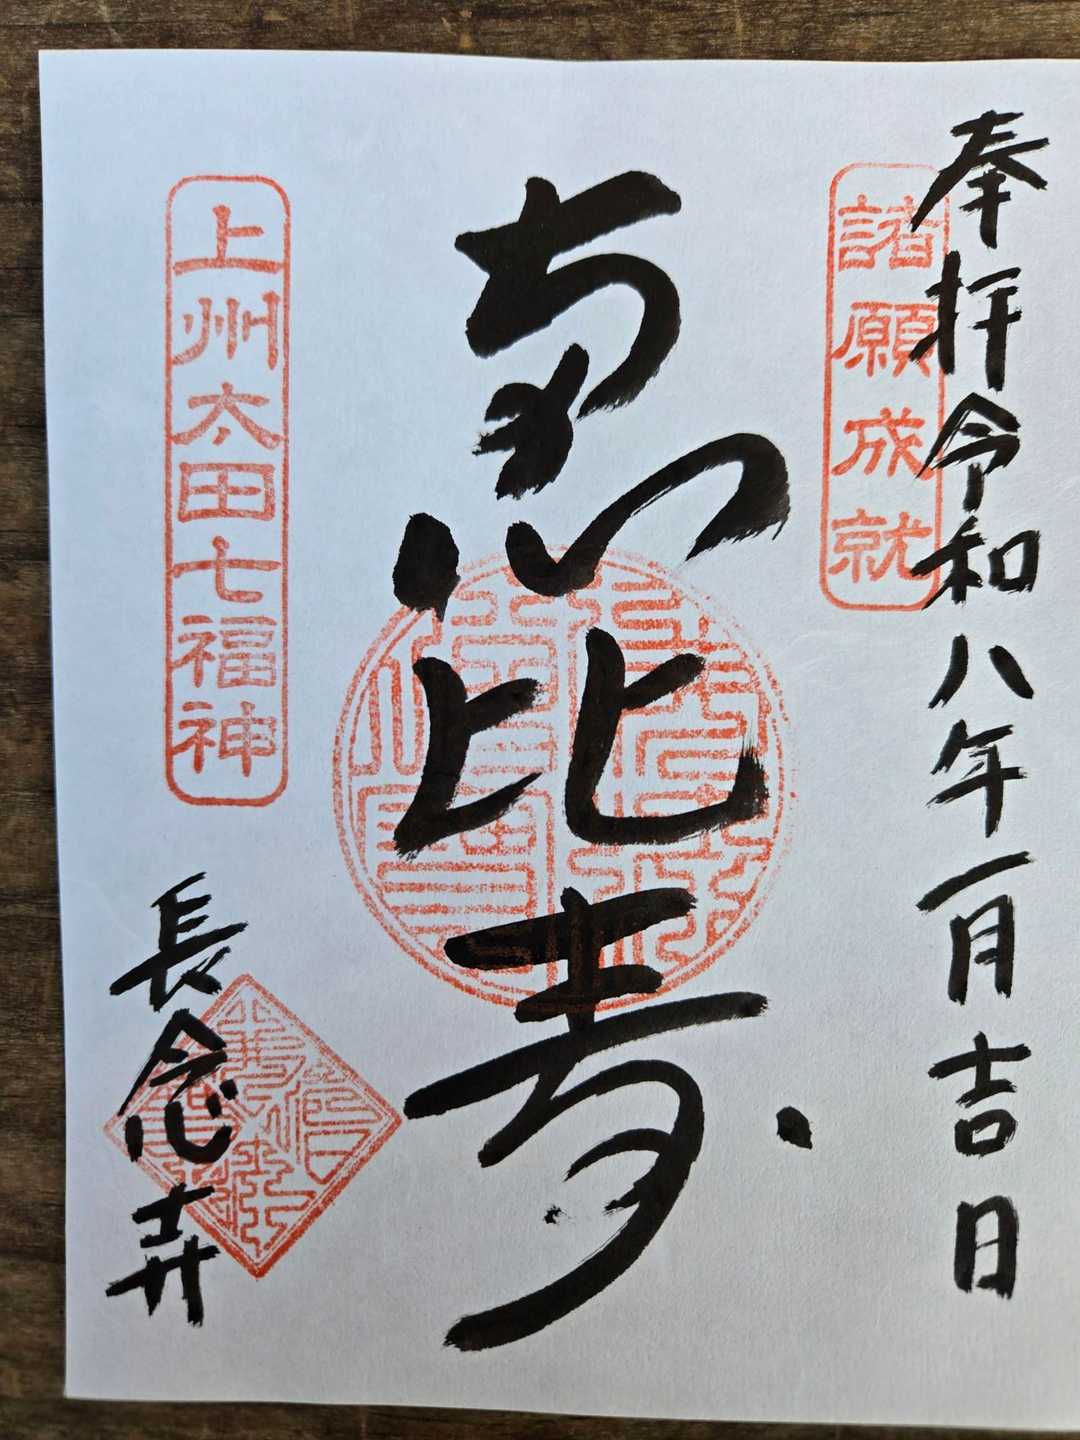 奉拝令和八年一月吉日
諸願成就
恵比寿
上州太田七福神
長念寺